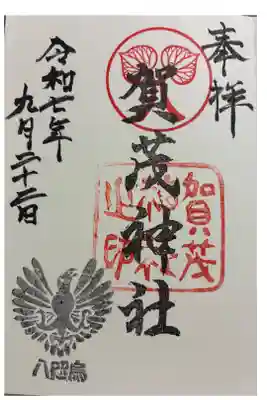 奉拝
賀茂神社
賀茂
神社
之印
令和七年
九月二十二日
八咫烏